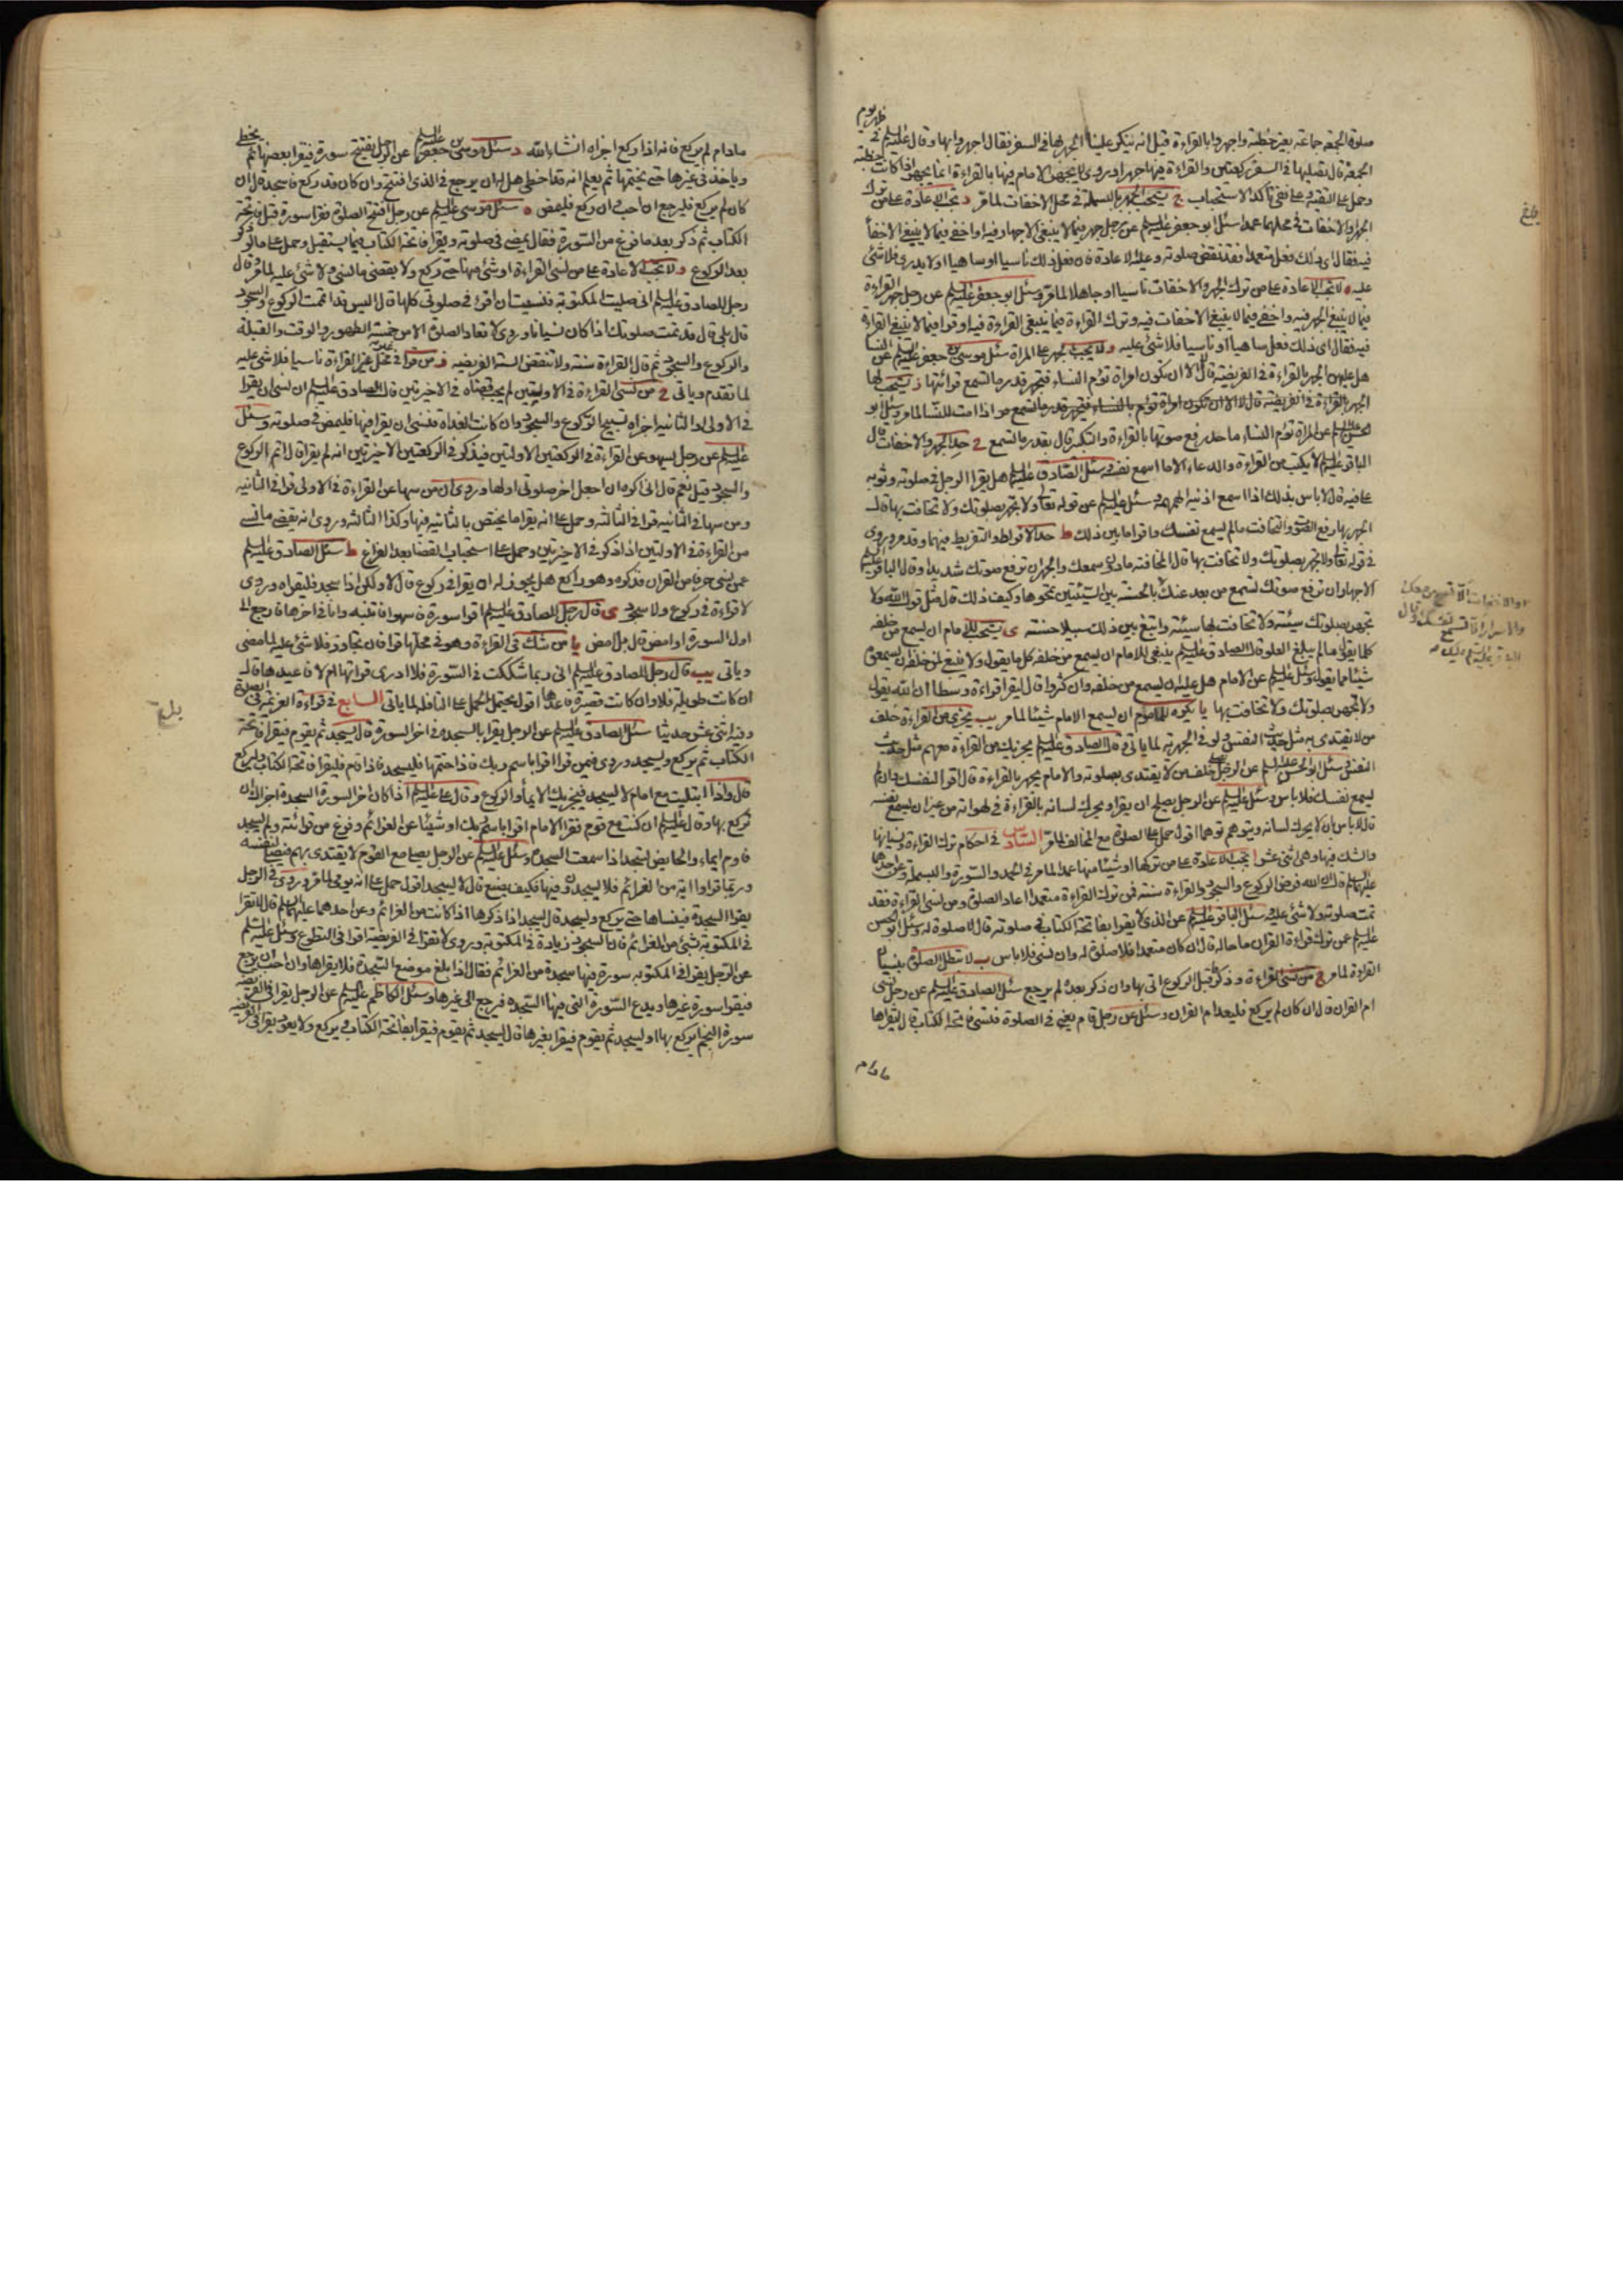 صلوة الجمعة جماعة بغير خطبة واجهروا بالقراءة فقيل انه ينكر علينا الجهر بها في السفر فقال اجهروا بها وقال عليه السلم في ظهر يوم
الجمعة قال تصليها في السفر ركعتين والقراءة فيها جهرا وروى لا يجهر الامام فيها بالقراءة انما يجهر اذا كانت خطبة
وحمل على التقية وعلى نفى تاكد الاستحباب ج يستحب الجهر بالبسملة في محل الاخفات لما مر د تجب الاعادة على من ترك
الجهر والاخفات في محلهما عمدا سئل ابو جعفر عليه السلم عن رجل جهر فيما لا ينبغي الاجهار فيه او اخفى فيما لا ينبغي الاخفا
فيه فقال اى ذلك فعل متعمدا فقد نقض صلوته وعليه الاعادة فان فعل ذلك ناسيا او ساهيا او لا يدرى فلا شئ
عليه ه لا تجب الاعادة على من ترك الجهر والاخفات ناسيا او جاهلا لما مر وسئل ابو جعفر عليه السلم عن رجل جهر بالقراءة
فيما لا ينبغي الجهر فيه واخفى فيما لا ينبغي الاخفات فيه وترك القراءة فيما ينبغي القراءة فيه او قرا فيما لا ينبغي القراءة
فيه فقال اى ذلك فعل ساهيا او ناسيا فلا شئ عليه و لا يجب الجهر على المراة سئل موسى بن جعفر عليه السلم عن النسا
هل عليهن الجهر بالقراءة في الفريضة قال لا الا ان تكون امراة تؤم النساء فتجهر قدر ما تسمع قراءتها ز يستحب لها
الجهر بالقراءة في الفريضة قال لا الا ان تكون امراة تؤم بالنساء فتجهر قدر ما تسمع اذا امت للنسا لما مر وسئل ابو
الحسن عليه السلم عن المراة تؤم النساء ما حد رفع صوتها بالقراءة والتكبير قال بقدر ما تسمع ح حد الجهر والاخفات قال
الباقر عليه السلم لا يكتب من القراءة والدعاء الا ما اسمع نفسه وسئل الصادق عليه السلم هل يقرا الرجل في صلوته وثوبه
على فيه قال لا باس بذلك اذا اسمع اذنيه الهمهمة وسئل عليه السلم عن قوله تعالى ولا تجهر بصلوتك ولا تخافت بها قال
الجهر بها رفع الصوت والتخافت ما لم يسمع نفسك واقرا ما بين ذلك ط حد الافراط والتفريط فيهما وقد مر وروى
في قوله تعالى ولا تجهر بصلوتك ولا تخافت بها قال المخافتة ما دون سمعك والجهر ان ترفع صوتك شديدا وقال الباقر عليه السلم
الاجهار ان ترفع صوتك تسمع من بعد عنك بالحسنة بين السيئتين تمحوها وكيف ذلك قال مثل قول الله ولا
تجهر بصلوتك سيئة ولا تخافت بها سيئة وابتغ بين ذلك سبيلا حسنة ى يستحب للامام ان يسمع من خلفه
كلما يقول ما لم يبلغ العلو قال الصادق عليه السلم ينبغي للامام ان يسمع من خلفه كل ما يقول ولا ينبغي لمن خلفه ان يسمعوه
شيئا مما يقول وسئل عليه السلم عن الامام هل عليه ان يسمع من خلفه وان كثروا قال ليقرا قراءة وسطا ان الله يقول
ولا تجهر بصلوتك ولا تخافت بها يا يكره للماموم ان يسمع الامام شيئا لما مر يب يجزى من القراءة خلف
من لا يقتدى به مثل حديث النفس ولو في الجهرية لما ياتى وقال الصادق عليه السلم يجزيك من القراءة معهم مثل حديث
النفس وسئل ابو الحسن عليه السلم عن الرجل يصلى خلف من لا يقتدى بصلوته والامام يجهر بالقراءة قال اقرا لنفسك وان لم
تسمع نفسك فلا باس وسئل عليه السلم عن الرجل يصلح ان يقرا ويحرك لسانه بالقراءة في لهواته من غير ان يسمع نفسه
قال لا باس ان لا يحرك لسانه ويتوهم توهما اقول حمل على الصلوة مع المخالف لما مر السادس في احكام ترك القراءة ونسيانها
والشك فيها وهى اثنى عشر ا تجب الاعادة على من تركها او شيئا منها عمدا لما مر في الحمد والسورة والبسملة وعن احدهما
عليهما السلم قال ان الله فرض الركوع والسجود والقراءة سنة فمن ترك القراءة متعمدا اعاد الصلوة ومن نسى القراءة فقد
تمت صلوته ولا شئ عليه وسئل الباقر عليه السلم عن الذى لا يقرا بفاتحة الكتاب في صلوته قال لا صلوة له وسئل ابو الحسن
عليه السلم عن ترك قراءة القران ما حاله قال ان كان متعمدا فلا صلوة له وان نسى فلا باس ب لا تبطل الصلوة بنسيان
القراءة لما مر ج من نسى القراءة وذكر قبل الركوع اتى بها وان ذكر بعده لم يرجع سئل الصادق عليه السلم عن رجل نسى
ام القران قال ان كان لم يركع فليعد ام القران وسئل عن رجل قام يغى في الصلوة فنسى فاتحة الكتاب قال ليقراها
مادام
بلغ
ما دام لم يركع فانه اذا ركع اجزاه انشاء الله د سئل موسى بن جعفر عليه السلم عن الرجل يفتتح سورة فيقرا بعضها ثم يخطى
وياخذ في غيرها حتى يختمها ثم يعلم انه قد اخطى هل له ان يرجع في الذى افتتح وان كان قد ركع فاسجد قال ان
كان لم يركع فليرجع ان احب وان ركع فليمض ه سئل موسى عليه السلم عن رجل افتتح الصلوة فقرا سورة قبل فاتحة
الكتاب ثم ذكر بعد ما فرغ من السورة فقال يمضى في صلوته ويقرا فاتحة الكتاب فيما يستقبل وحمل على ما لو ذكر
بعد الركوع و لا تجب الاعادة على من نسى القراءة او شئ منها حتى ركع ولا يقضى ما نسى ولا شئ عليه لما مر وقال
رجل للصادق عليه السلم انى صليت المكتوبة فنسيت ان اقرا في صلوتى كلها قال اليس قد اتممت الركوع والسجود
قال بلى قال قد تمت صلوتك اذا كان نسيانا وروى لا تعاد الصلوة الا من خمسة الطهور والوقت والقبلة
والركوع والسجود ثم قال القراءة سنة ولا تنقض السنة الفريضة ز من قرا في محل غير القراءة ناسيا فلا شئ عليه
لما تقدم وياتى ح من نسى القراءة في الاولتين لم يجب قضاه في الاخيرتين قال الصادق عليه السلم ان نسى ان يقرا
في الاولى او الثانية اجزاه تسبيح الركوع والسجود وان كانت الغداة فنسى ان يقرا فيها فليمض في صلوته وسئل
عليه السلم عن رجل يسهو عن القراءة في الركعتين الاولتين فيذكر في الركعتين الاخيرتين انه لم يقرا قال اتم الركوع
والسجود قيل نعم قال انى اكره ان اجعل اخر صلوتى اولها وروى ان من سها عن القراءة في الاولى قرا في الثانية
ومن سها في الثانية قرا في الثالثة وحمل على انه يقرا ما يختص بالثانية فيها وكذا الثالثة وروى انه يقضى ما نسى
من القراءة في الاولتين اذا ذكر في الاخيرتين وحمل على استحباب القضا بعد الفراغ ط سئل الصادق عليه السلم
عمن نسى حرفا من القران فذكره وهو راكع هل يجوز له ان يقرا في ركوع قال لا ولكن اذا سجد فليقراه وروى
لا قراءة في ركوع ولا سجود ى قال رجل للصادق عليه السلم اقرا سورة فاسهو فانتبه وانا في اخرها فارجع الى
اول السورة او امض قال بل امض يا من شك في القراءة وهو في محلها قرا فان تجاوز فلا شئ عليه لما مضى
وياتى يب قال رجل للصادق عليه السلم انى ربما شككت في السورة فلا ادرى قراتها ام لا فاعيدها قال
ان كانت طويلة فلا وان كانت قصيرة فاعدها اقول يحتمل الحمل على النافلة لما ياتى السابع في قراءة العزيمة في الصلوة
وفيه اثنى عشر حديثا سئل الصادق عليه السلم عن الرجل يقرا بالسجدة في اخر السورة قال يسجد ثم يقوم فيقرا فاتحة
الكتاب ثم يركع ويسجد وروى فيمن قرا اقرا باسم ربك فاذا ختمها فليسجد فاذا قام فليقرا فاتحة الكتاب وليركع
قال واذا ابتليت مع امام لا يسجد فيجزيك الايماء والركوع وقال على عليه السلم اذا كان اخر السورة السجدة اجزاك ان
تركع بها وقال عليه السلم ان كنت مع قوم فقرا الامام اقرا باسم ربك او شيئا من العزائم وفرغ من قراءته ولم يسجد
فاوم ايماء والحايض تسجد اذا سمعت السجدة وسئل عليه السلم عن الرجل يصلى مع القوم لا يقتدى بهم فيصلى لنفسه
وربما قراوا اية من العزائم فلا يسجدون فيها فكيف يصنع قال لا يسجد اقول حمل على انه يومى لما مر وروى في الرجل
يقرا السجدة فينساها حتى يركع ويسجد قال يسجد اذا ذكرها اذا كانت من العزائم وعن احدهما عليهما السلم قال لا تقرا
في المكتوبة بشئ من العزائم فان السجود زيادة في المكتوبة وروى لا تقرا في الفريضة اقرا في التطوع وسئل عليه السلم
عن الرجل يقرا في المكتوبة سورة فيها سجدة من العزائم فقال اذا بلغ موضع السجدة فلا يقراها وان احب ان يرجع
فيقرا سورة غيرها ويدع السورة التى فيها السجدة فيرجع الى غيرها وسئل الكاظم عليه السلم عن الرجل يقرا في الفريضة
سورة النجم ايركع بها او يسجد ثم يقوم فيقرا بغيرها قال يسجد ثم يقوم فيقرا بفاتحة الكتاب ويركع ولا يعود يقرا في الفريضة
بلغ